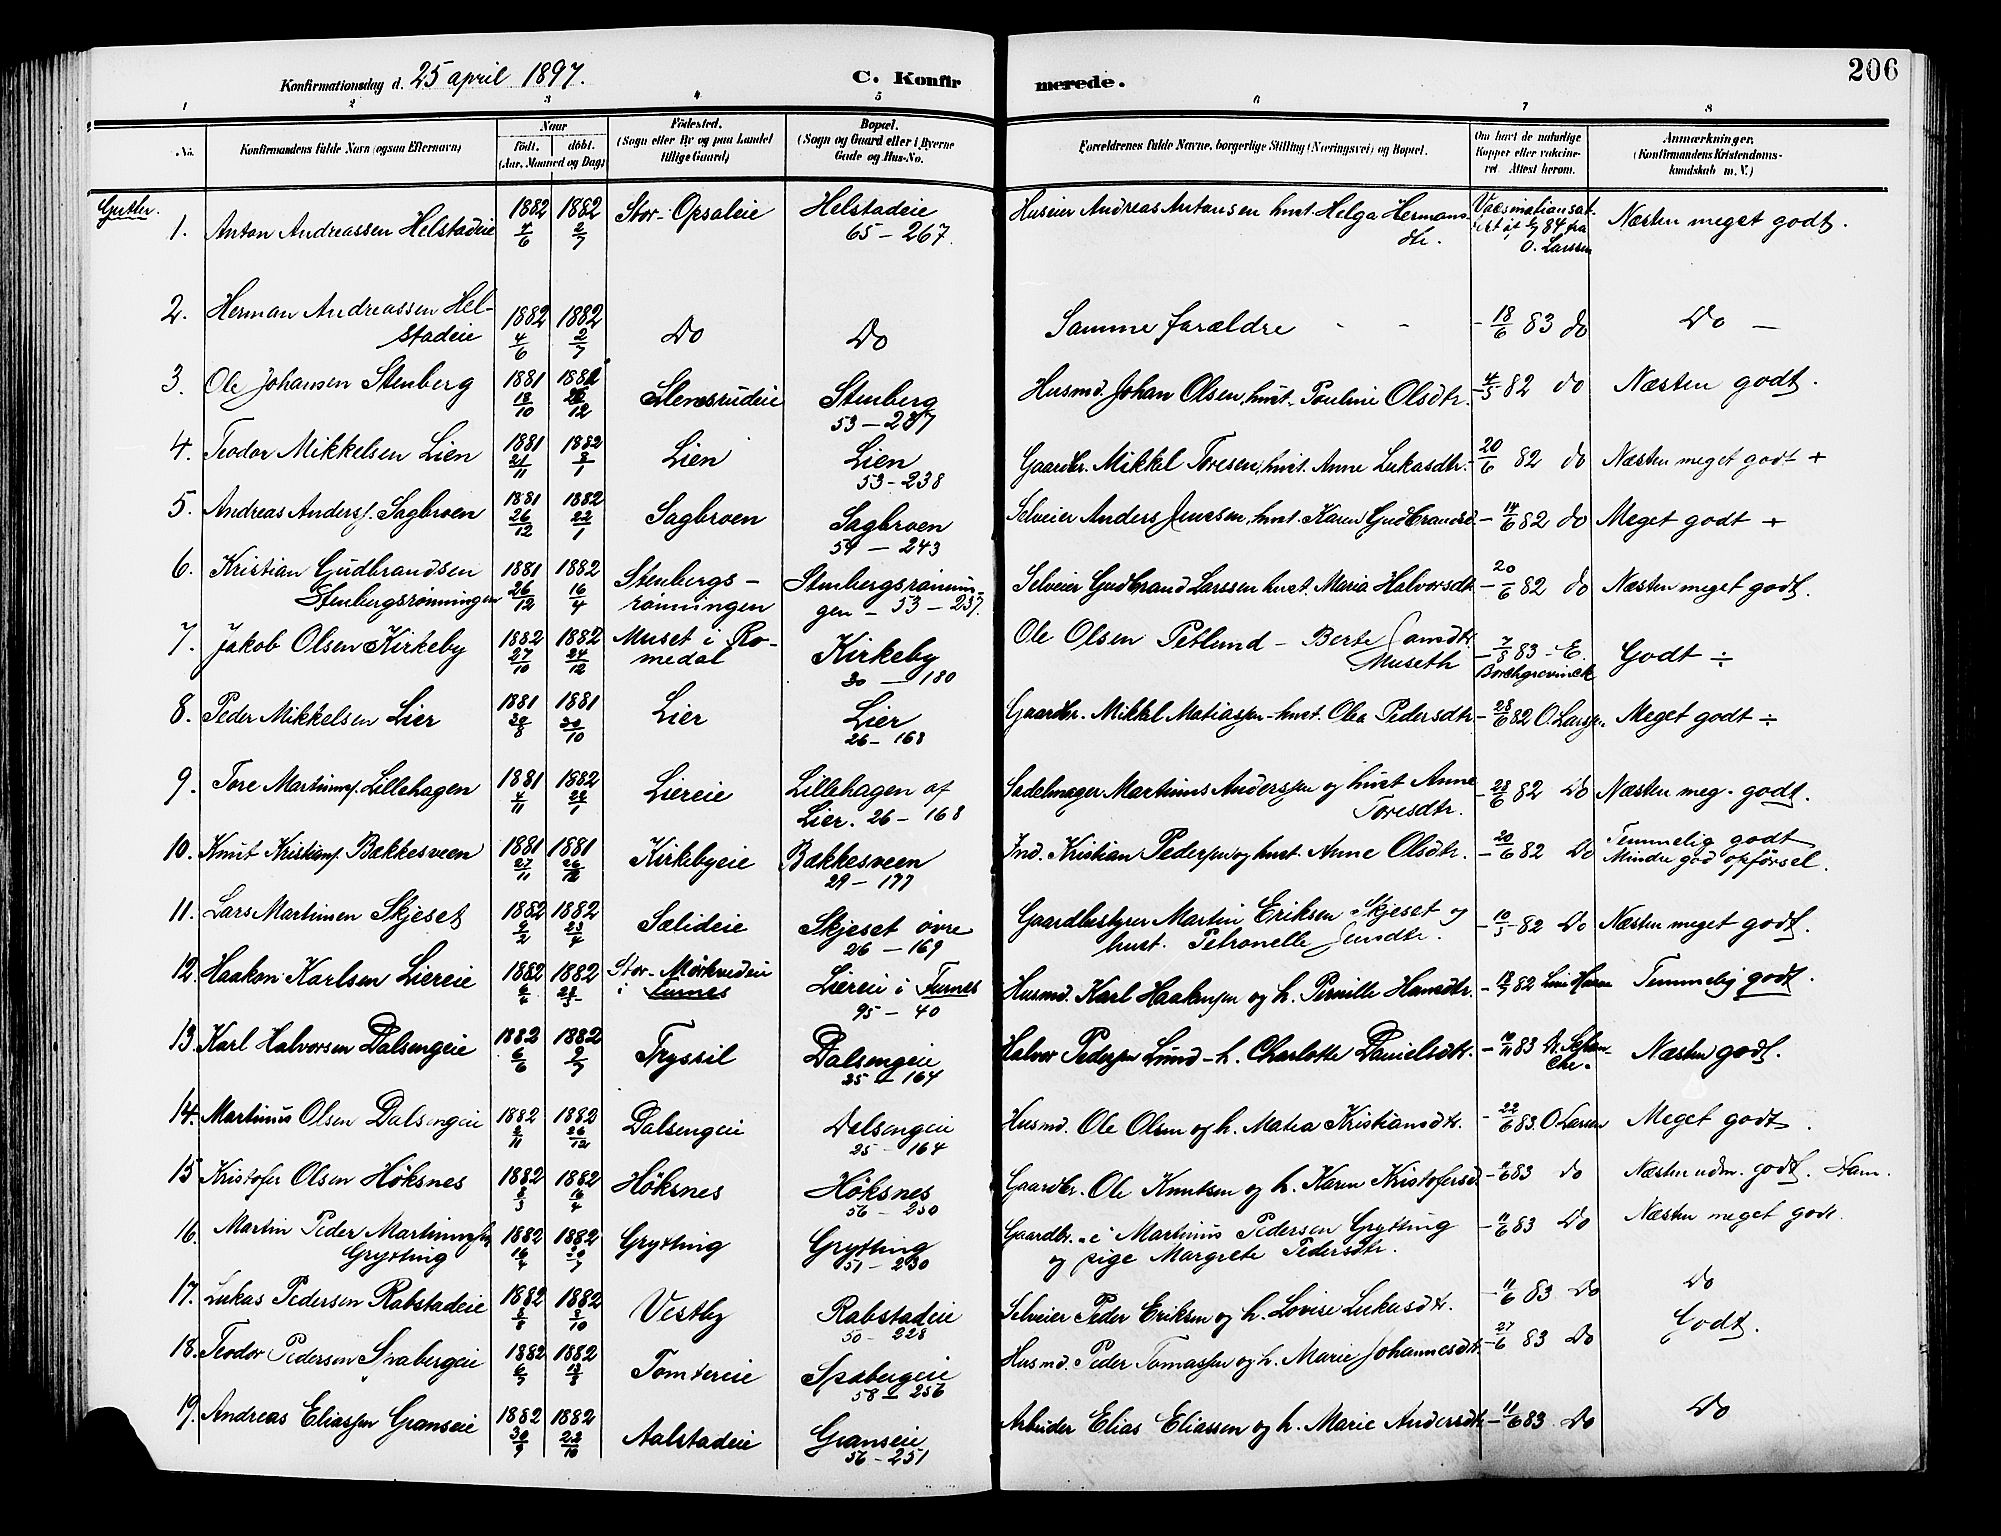 206
Konfirmationsdag d. 25 april 1897. C. Konfirmerede.
1 2 3 4 5 6 7 8
No. Konfirmandens fulde Navn (ogsaa Efternavn) Naar født. døbt. (Aar, Maaned og Dag) Fødested. (Sogn eller By og paa Landet tillige Gaard) Bopæl. (Sogn og Gaard eller i Byerne Gade og Hus-No. Forældrenes fulde Navne, borgerlige Stilling (Næringsvei) og Bopæl. Om havt de naturlige Kopper eller vakcineret. Attest herom. Anmærkninger. (Konfirmandens Kristendomskundskab m. V.)
Gutter.
1. Anton Andreassen Helstadeie 1882 4/6 1882 2/7 Stor-Opsaleie Helstadeie 65-267. Huseier Andreas Antonsen hust. Helga Hermansdtr. 84 fra O. Larssen Næsten meget godt.
2. Herman Andreassen Helstadeie 1882 4/6 1882 2/7 Do Do Samme forældre - - - 18/6 83 do Do -
3. Ole Johansen Stenberg 1881 18/10 1881 26/12 Stensrudeie Stenberg 53-237 Husmd. Johan Olsen, hust. Pouline Olsdtr. - 4/5 82 do Næsten godt.
4. Teodor Mikkelsen Lien 1881 21/11 1882 8/1 Lien Lien 53-238 Gaardbr. Mikkel Toresen, hust. Anne Lukasdtr. 20/6 82 do Næsten meget godt +
5. Andreas Anders. Sagbroen 1881 26/12 1882 22/1 Sagbroen Sagbroen 54-243 Selveier Anders Jenssen, hust. Karen Gudbrandsd. - 14/6 82 do Meget godt +
6. Kristian Gudbrandsen Stenbergsrønningen 1881 26/12 1882 16/4 Stenbergsrønningen Stenbergsrønningen - 53-237. Selveier Gudbrand Larssen hust. Maria Halvorsdtr. - 20/6 82 do Næsten meget godt.
7. Jakob Olsen Kirkeby 1882 27/10 1882 24/12 Muset i Romedal Kirkeby 30-180 Ole Olsen Petlund - Berte Jansdtr. Museth - 7/8 83 - E. Borchgrevinck Godt ÷
8. Peder Mikkelsen Lier 1881 29/8 1881 30/10 Lier Lier 26-168 Gaardbr. Mikkel Matiassen - hust. Olea Pedersdtr. - 28/6 82 O Larss. Meget godt ÷
9. Tore Martinus. Lillehagen 1881 4/11 1882 22/1 Liereie Lillehagen af Lier. 26-168 Sadelmager Martinus Anderssen og hust Anne Toresdtr. - 28/6 82 Do Næsten meg. godt.
10. Knut Kristians. Bækkesveen 1881 27/11 1881 26/12 Kirkebyeie Bækkesveen 29-177 Ind. Kristian Pederssen og hust. Anne Olsdtr. - 20/6 82 Do Temmelig godt Mindre god opførsel.
11. Lars Martinsen Skjeset 1882 9/2 1882 23/4 Sælideie Skjeset øvre 26-169 Gaardbestyrer Martin Eriksen Skjeset og hust. Petronelle Jensdtr. - 10/5 82 Do Næsten meget godt.
12. Haakon Karlsen Liereie 1882 1882 Stor-Mørkvedeie i Furnes Liereie i Furnes 95-40 Husmd. Karl Haakenssen og h. Pernille Hansdtr. 82 Temmelig godt.
13. Karl Halvorsen Dalsengeie 1882 6/6 1882 9/7 Tryssil Dalsengeie 25-164 Halvor Pederssen Lund - h. Charlotte Danielsdtr. 83 Næsten godt.
14. Martinus Olsen Dalsengeie 1882 8/11 1882 26/12 Dalsengeie Dalsengeie 25-164 Husmd. Ole Olsen og h. Matea Kristiansdtr. - 22/6 83. O Larsen Meget godt.
15 Kristofer Olsen Høksnes 1882 8/3 1882 16/4 Høksnes Høksnes 56-250 Gaardbr. Ole Knutsen og h. Karen Kristofersd. 83 do Næsten udm. godt.
16. Martin Peder Martinus. Grytting 1882 16/4 1882 30/7 Grytting Grytting 51-230 Gaardbr. Martinus Pedersen Grytting og pige Margrete Pedersdtr. - 11/6 83 Do Næsten meget godt.
17. Lukas Pedersen Rabstadeie 1882 8/8 1882 8/10 Vestby Rabstadeie 50-228 Selveier Peder Eriksen og h. Lovise Lukasdtr. - 11/6 83 Do Do
18. Teodor Pedersen Spabergeie 1882 6/7 1882 13/8 Tomtereie Spabergeie 58-256 Husmd. Peder Tomassen og h. Marie Johannesdtr. - 27/6 83 Do Godt.
19. Andreas Eliassen Granseie 1882 30/9 1882 22/10 Aalstadeie Granseie 56-251 Arbeider Elias Eliassen og h. Marie Andersdtr. - 11/6 83 Do Do